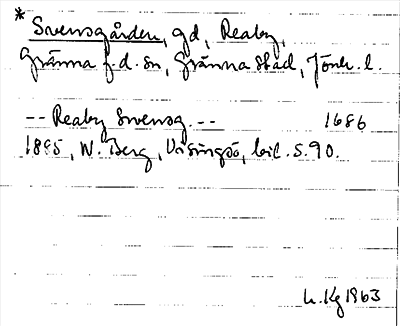 * Svensgården, gd, Reaby,
Gränna f.d. sn, Gränna stad, Jönk. l.
-- Reaby Svensg. -- 1686
1885, W. Berg, Visingsö, bil. s. 90.
L. Kg 1963